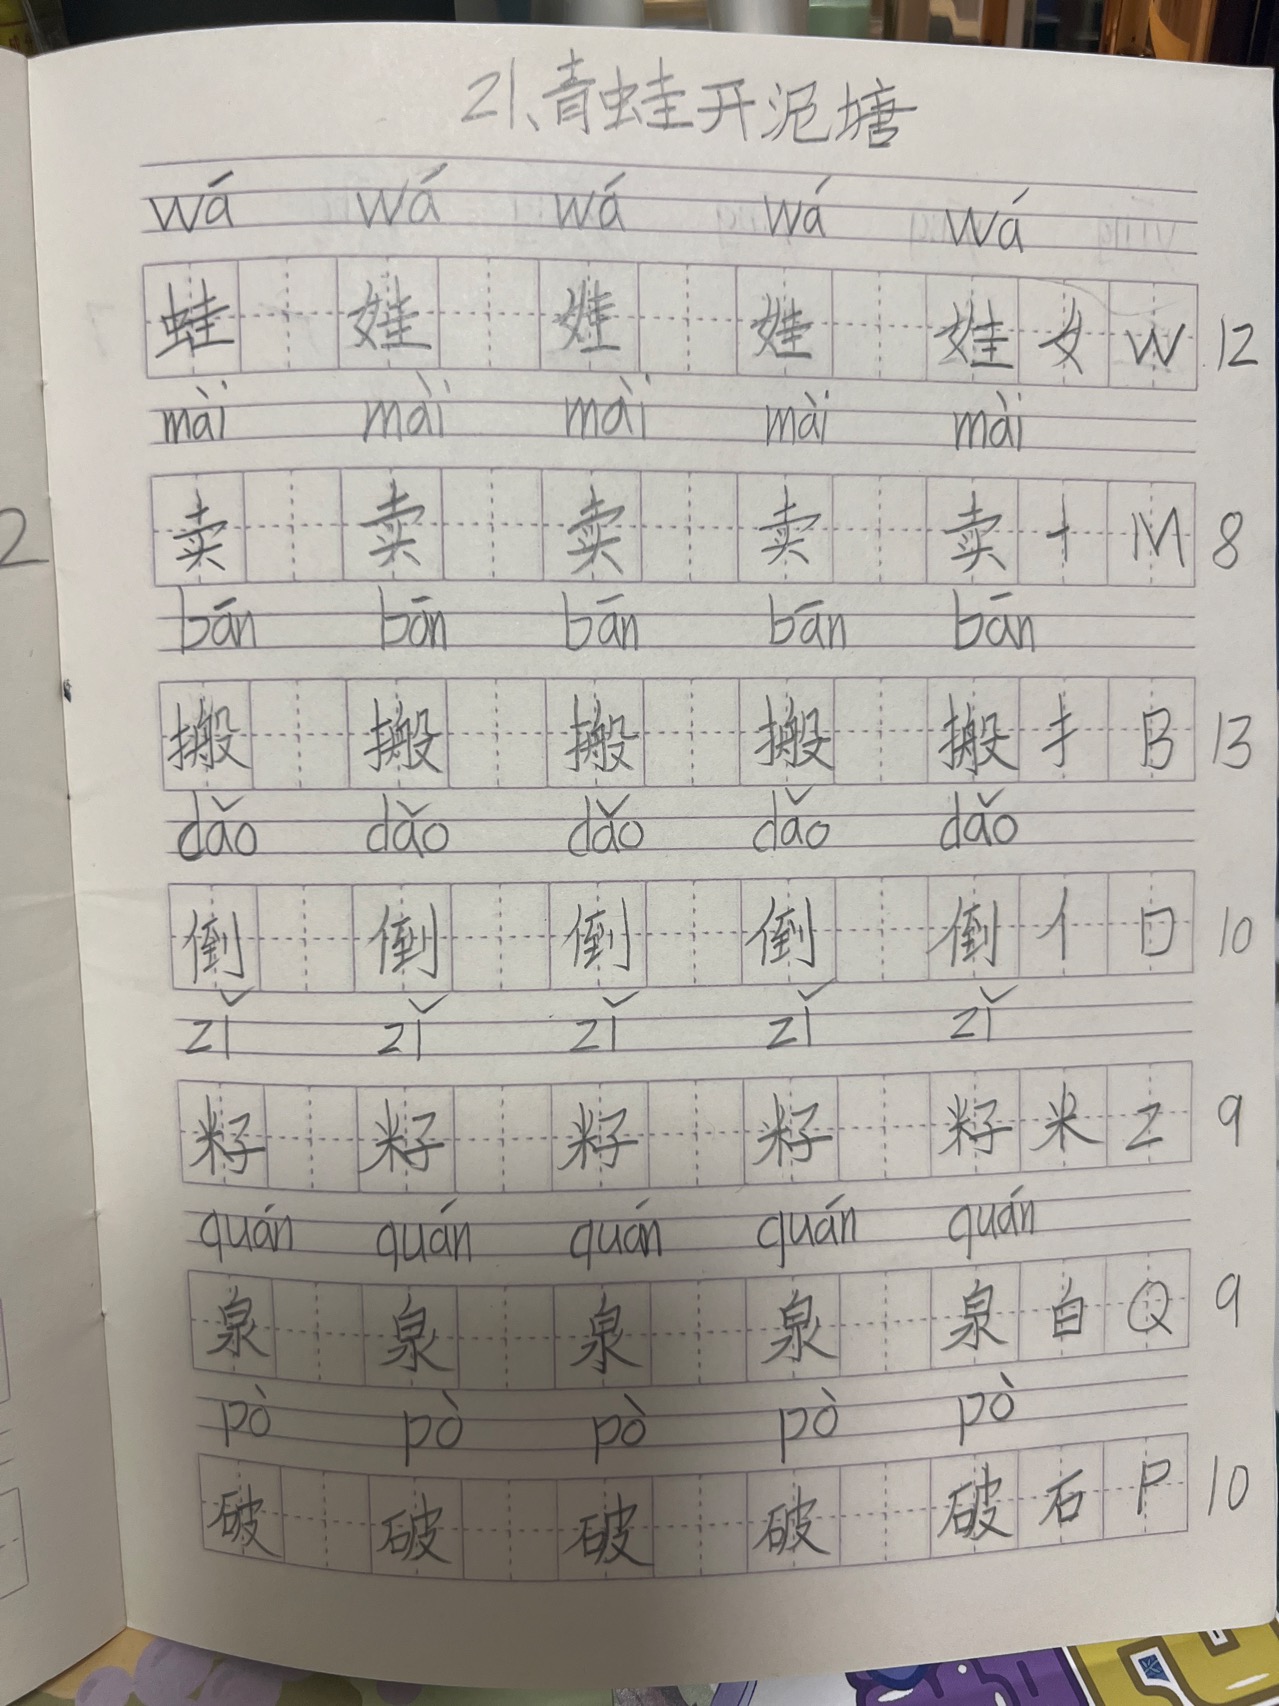 21、青蛙开泥塘
wá wá wá wá wá
蛙 娃 娃 娃 娃 女 W 12
mài mài mài mài mài
卖 卖 卖 卖 卖 十 M 8
bān bān bān bān bān
搬 搬 搬 搬 搬 扌 B 13
dǎo dǎo dǎo dǎo dǎo
倒 倒 倒 倒 倒 亻 D 10
zǐ zǐ zǐ zǐ zǐ
籽 籽 籽 籽 籽 米 Z 9
quán quán quán quán quán
泉 泉 泉 泉 泉 白 Q 9
pò pò pò pò pò
破 破 破 破 破 石 P 10
2